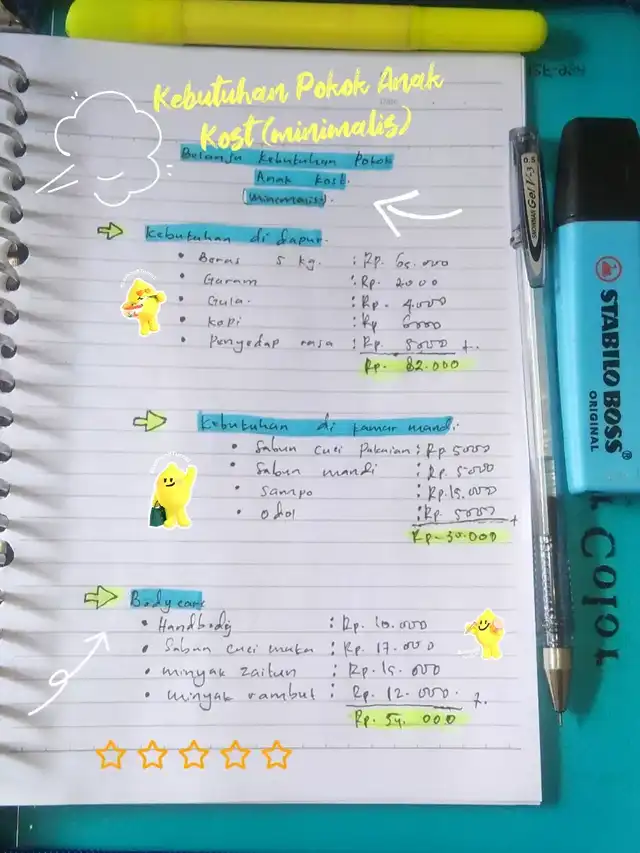 Kebutuhan Pokok Anak
Kost (minimalis)
Belanja kebutuhan Pokok
Anak kost.
(minimalis).
Kebutuhan di dapur.
• Beras 5 kg. : Rp. 65.000
• Garam : Rp. 2000
• Gula. : Rp. 4.000
• kopi : Rp 6000
• Penyedap rasa : Rp. 5000 +.
Rp. 82.000
Kebutuhan di kamar mandi.
• Sabun cuci Pakaian : Rp 5000
• Sabun mandi : Rp. 5.000
• Sampo : Rp. 15.000
• odol : Rp. 5000 +
Rp. 30.000
Body care
• Handbody : Rp. 10.000
• Sabun cuci muka : Rp. 17.000
• minyak zaitun : Rp. 15.000
• minyak rambut : Rp. 12.000. +.
Rp. 54.000
STABILO BOSS
ORIGINAL
Gel
Color